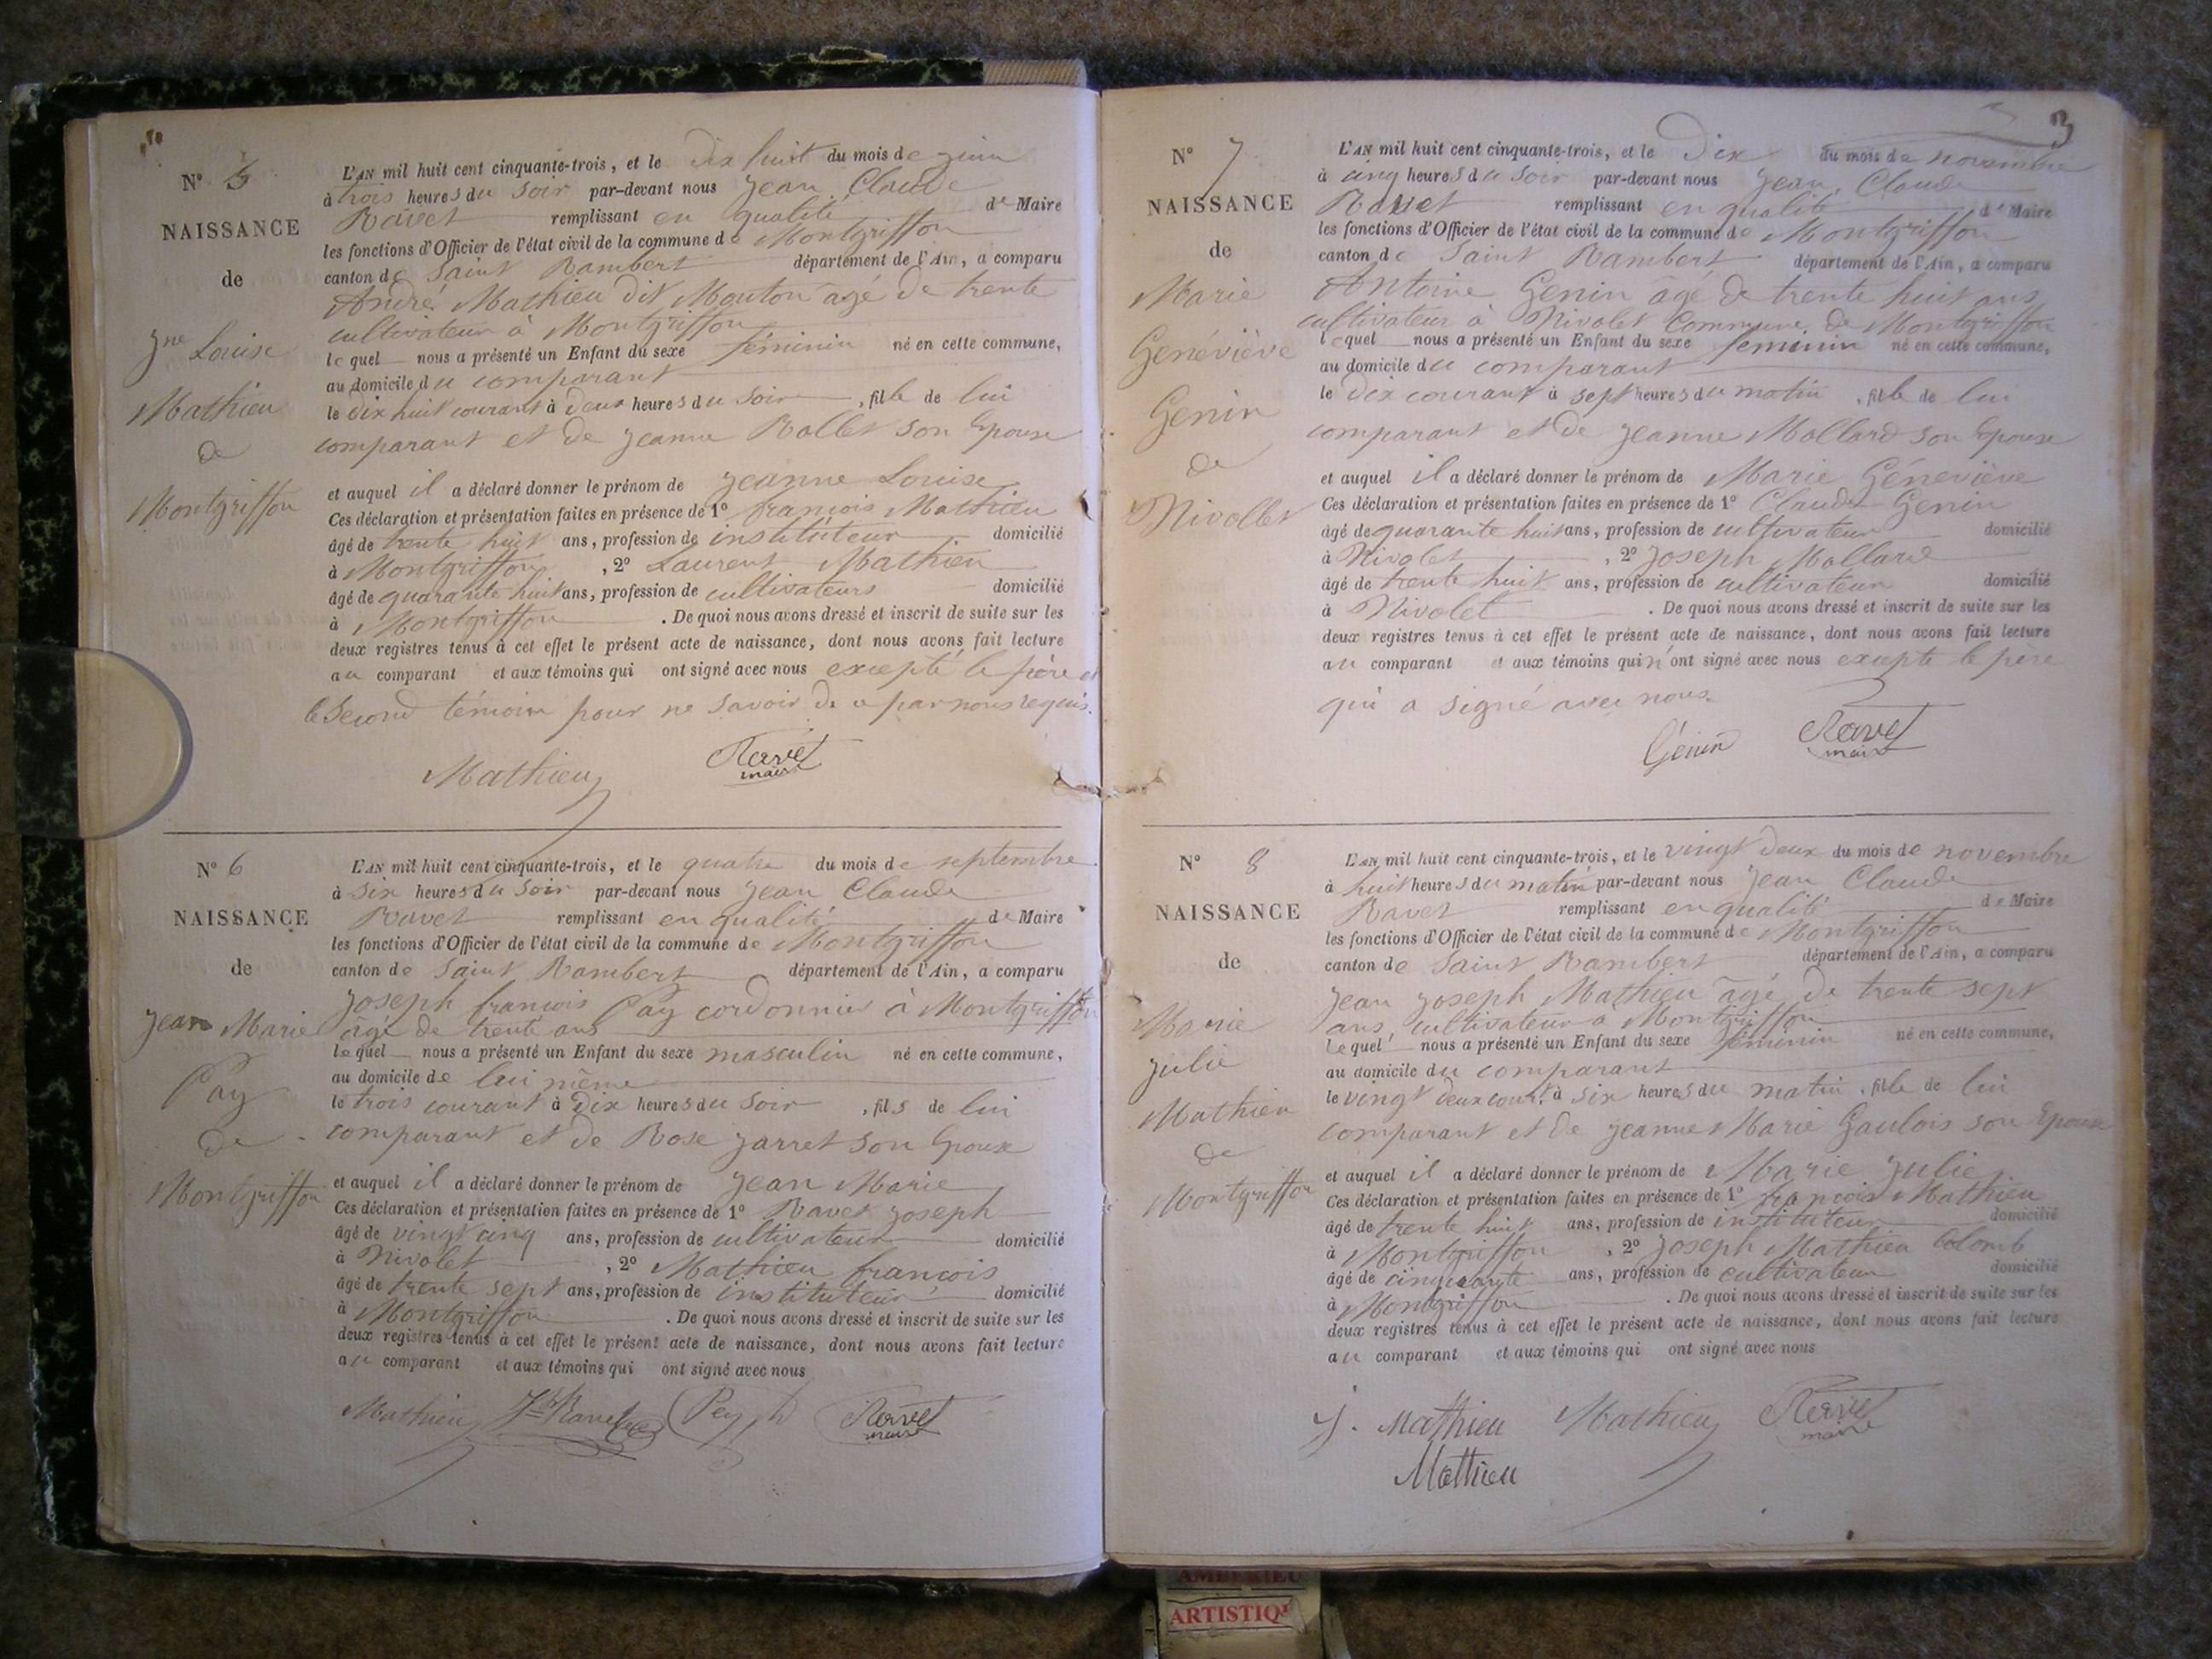 N° 5
NAISSANCE
de
Jne Louise
Mathieu
de
Montgriffon
L'AN mil huit cent cinquante-trois, et le dix huit du mois de juin
à trois heures du soir par-devant nous Jean Claude
Ravet remplissant en qualité de Maire
les fonctions d'Officier de l'état civil de la commune de Montgriffon
canton de Saint Rambert département de l'Ain, a comparu
André Mathieu dit Mouton âgé de trente
cultivateur à Montgriffon
lequel nous a présenté un Enfant du sexe féminin né en cette commune,
au domicile du comparant
le dix huit courant à deux heures du soir, fille de lui
comparant et de Jeanne Rollet son Epouse
et auquel il a déclaré donner le prénom de Jeanne Louise
Ces déclaration et présentation faites en présence de 1° françois Mathieu
âgé de trente huit ans, profession de instituteur domicilié
à Montgriffon, 2° Laurent Mathieu
âgé de quarante huit ans, profession de cultivateurs domicilié
à Montgriffon. De quoi nous avons dressé et inscrit de suite sur les
deux registres tenus à cet effet le présent acte de naissance, dont nous avons fait lecture
au comparant et aux témoins qui ont signé avec nous excepté le père et
le Second témoin pour ne savoir de ce par nous requis.
Mathieu Ravet
maire
N° 6
NAISSANCE
de
Jean Marie
Pay
de
Montgriffon
L'AN mil huit cent cinquante-trois, et le quatre du mois de septembre
à six heures du soir par-devant nous Jean Claude
Ravet remplissant en qualité de Maire
les fonctions d'Officier de l'état civil de la commune de Montgriffon
canton de Saint Rambert département de l'Ain, a comparu
Joseph françois Pay cordonnier à Montgriffon
âgé de trente ans
lequel nous a présenté un Enfant du sexe masculin né en cette commune,
au domicile de lui même
le trois courant à dix heures du soir, fils de lui
comparant et de Rose Jarret son Epouse
et auquel il a déclaré donner le prénom de Jean Marie
Ces déclaration et présentation faites en présence de 1° Ravet Joseph
âgé de vingt cinq ans, profession de cultivateur domicilié
à Nivolet, 2° Mathieu françois
âgé de trente sept ans, profession de instituteur domicilié
à Montgriffon. De quoi nous avons dressé et inscrit de suite sur les
deux registres tenus à cet effet le présent acte de naissance, dont nous avons fait lecture
au comparant et aux témoins qui ont signé avec nous
Mathieu Ravet Ravet
maire
3
N° 7
NAISSANCE
de
Marie
Genéviève
Genin
de
Nivollet
L'AN mil huit cent cinquante-trois, et le Dix du mois de novembre
à cinq heures du soir par-devant nous Jean Claude
Ravet remplissant en qualité de Maire
les fonctions d'Officier de l'état civil de la commune de Montgriffon
canton de Saint Rambert département de l'Ain, a comparu
Antoine Genin âgé de trente huit ans
cultivateur à Nivolet Commune de Montgriffon
lequel nous a présenté un Enfant du sexe feminin né en cette commune,
au domicile du comparant
le Dix courant à sept heures du matin, fille de lui
comparant et de Jeanne Mollard son Epouse
et auquel il a déclaré donner le prénom de Marie Géneviève
Ces déclaration et présentation faites en présence de 1° Claude Genin
âgé de quarante huit ans, profession de cultivateur domicilié
à Nivolet, 2° Joseph Mollard
âgé de trente huit ans, profession de cultivateur domicilié
à Nivolet. De quoi nous avons dressé et inscrit de suite sur les
deux registres tenus à cet effet le présent acte de naissance, dont nous avons fait lecture
au comparant et aux témoins qui n'ont signé avec nous excepté le père
qui a signé avec nous
Génin Ravet
maire
N° 8
NAISSANCE
de
Marie
Julie
Mathieu
de
Montgriffon
L'AN mil huit cent cinquante-trois, et le vingt deux du mois de novembre
à huit heures du matin par-devant nous Jean Claude
Ravet remplissant en qualité de Maire
les fonctions d'Officier de l'état civil de la commune de Montgriffon
canton de Saint Rambert département de l'Ain, a comparu
Jean Joseph Mathieu âgé de trente sept
ans, cultivateur à Montgriffon
lequel nous a présenté un Enfant du sexe féminin né en cette commune,
au domicile du comparant
le vingt deux cour.t à six heures du matin, fille de lui
comparant et de Jeanne Marie Gaulois son Epouse
et auquel il a déclaré donner le prénom de Marie Julie
Ces déclaration et présentation faites en présence de 1° françois Mathieu
âgé de trente huit ans, profession de instituteur domicilié
à Montgriffon, 2° Joseph Mathieu Colomb
âgé de cinquante ans, profession de cultivateur domicilié
à Montgriffon. De quoi nous avons dressé et inscrit de suite sur les
deux registres tenus à cet effet le présent acte de naissance, dont nous avons fait lecture
au comparant et aux témoins qui ont signé avec nous
J. Mathieu Mathieu Ravet
maire
Mathieu
AMBERIEU
ARTISTIQ